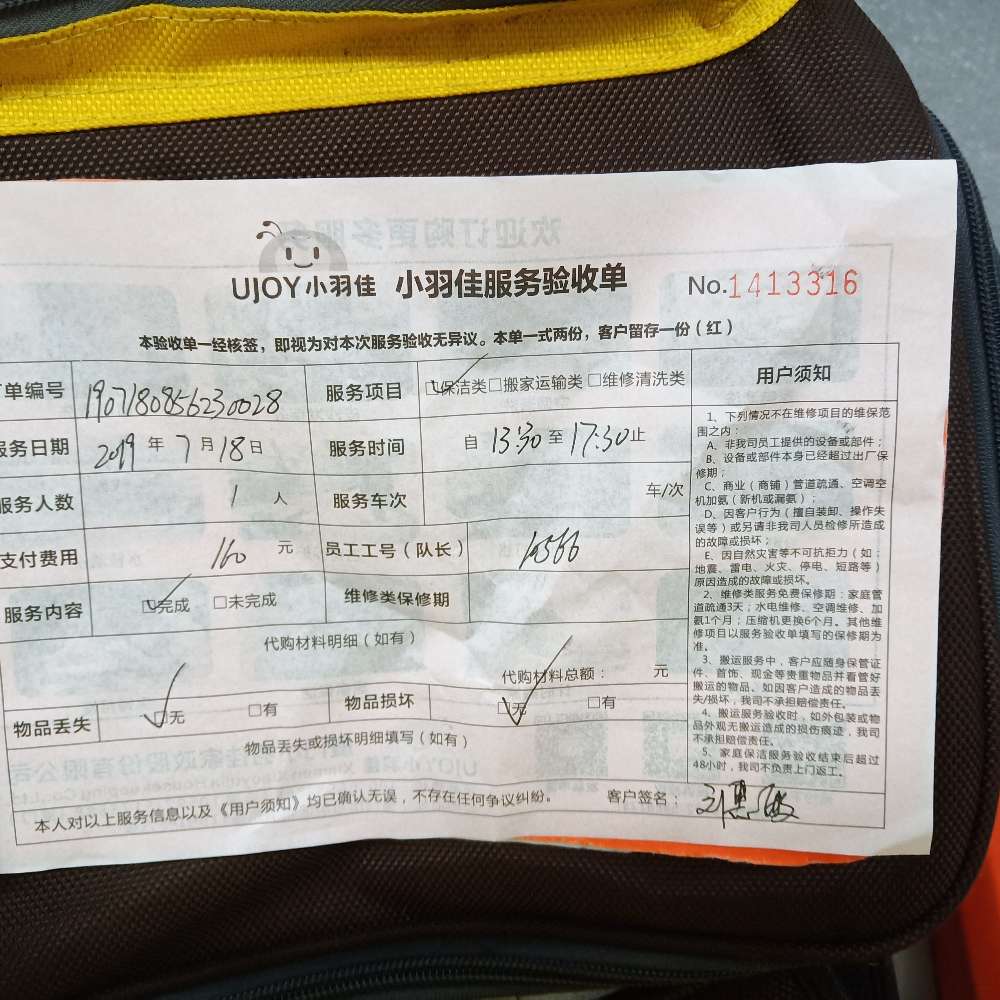 UJOY小羽佳 小羽佳服务验收单 No.1413316
本验收单一经核签，即视为对本次服务验收无异议。本单一式两份，客户留存一份（红）
单编号 1907180856230028 服务项目 保洁类 □搬家运输类 □维修清洗类
服务日期 2019 年 7 月 18 日 服务时间 自 13:30 至 17:30 止
服务人数 1 人 服务车次 车/次
支付费用 160 元 员工工号（队长） 16566
服务内容 完成 □未完成 维修类保修期
代购材料明细（如有）
代购材料总额： 元
物品丢失 无 □有 物品损坏 无 □有
物品丢失或损坏明细填写（如有）
本人对以上服务信息以及《用户须知》均已确认无误，不存在任何争议纠纷。 客户签名：
用户须知
1、下列情况不在维修项目的维保范
围之内：
A、非我司员工提供的设备或部件；
B、设备或部件本身已经超过出厂保
修期；
C、商业（商铺）管道疏通、空调空
机加氨（新机或漏氨）；
D、因客户行为（擅自装卸、操作失
误等）或另请非我司人员检修所造成
的故障或损坏；
E、因自然灾害等不可抗拒力（如：
地震、雷电、火灾、停电、短路等）
原因造成的故障或损坏。
2、维修类服务免费保修期：家庭管
道疏通3天；水电维修、空调维修、加
氨1个月；压缩机更换6个月。其他维
修项目以服务验收单填写的保修期为
准。
3、搬运服务中，客户应随身保管证
件、首饰、现金等贵重物品并看管好
搬运的物品。如因客户造成的物品丢
失/损坏，我司不承担赔偿责任。
4、搬运服务验收时，如外包装或物
品外观无搬运造成的损伤痕迹，我司
不承担赔偿责任。
5、家庭保洁服务验收结束后超过
48小时，我司不负责上门返工。